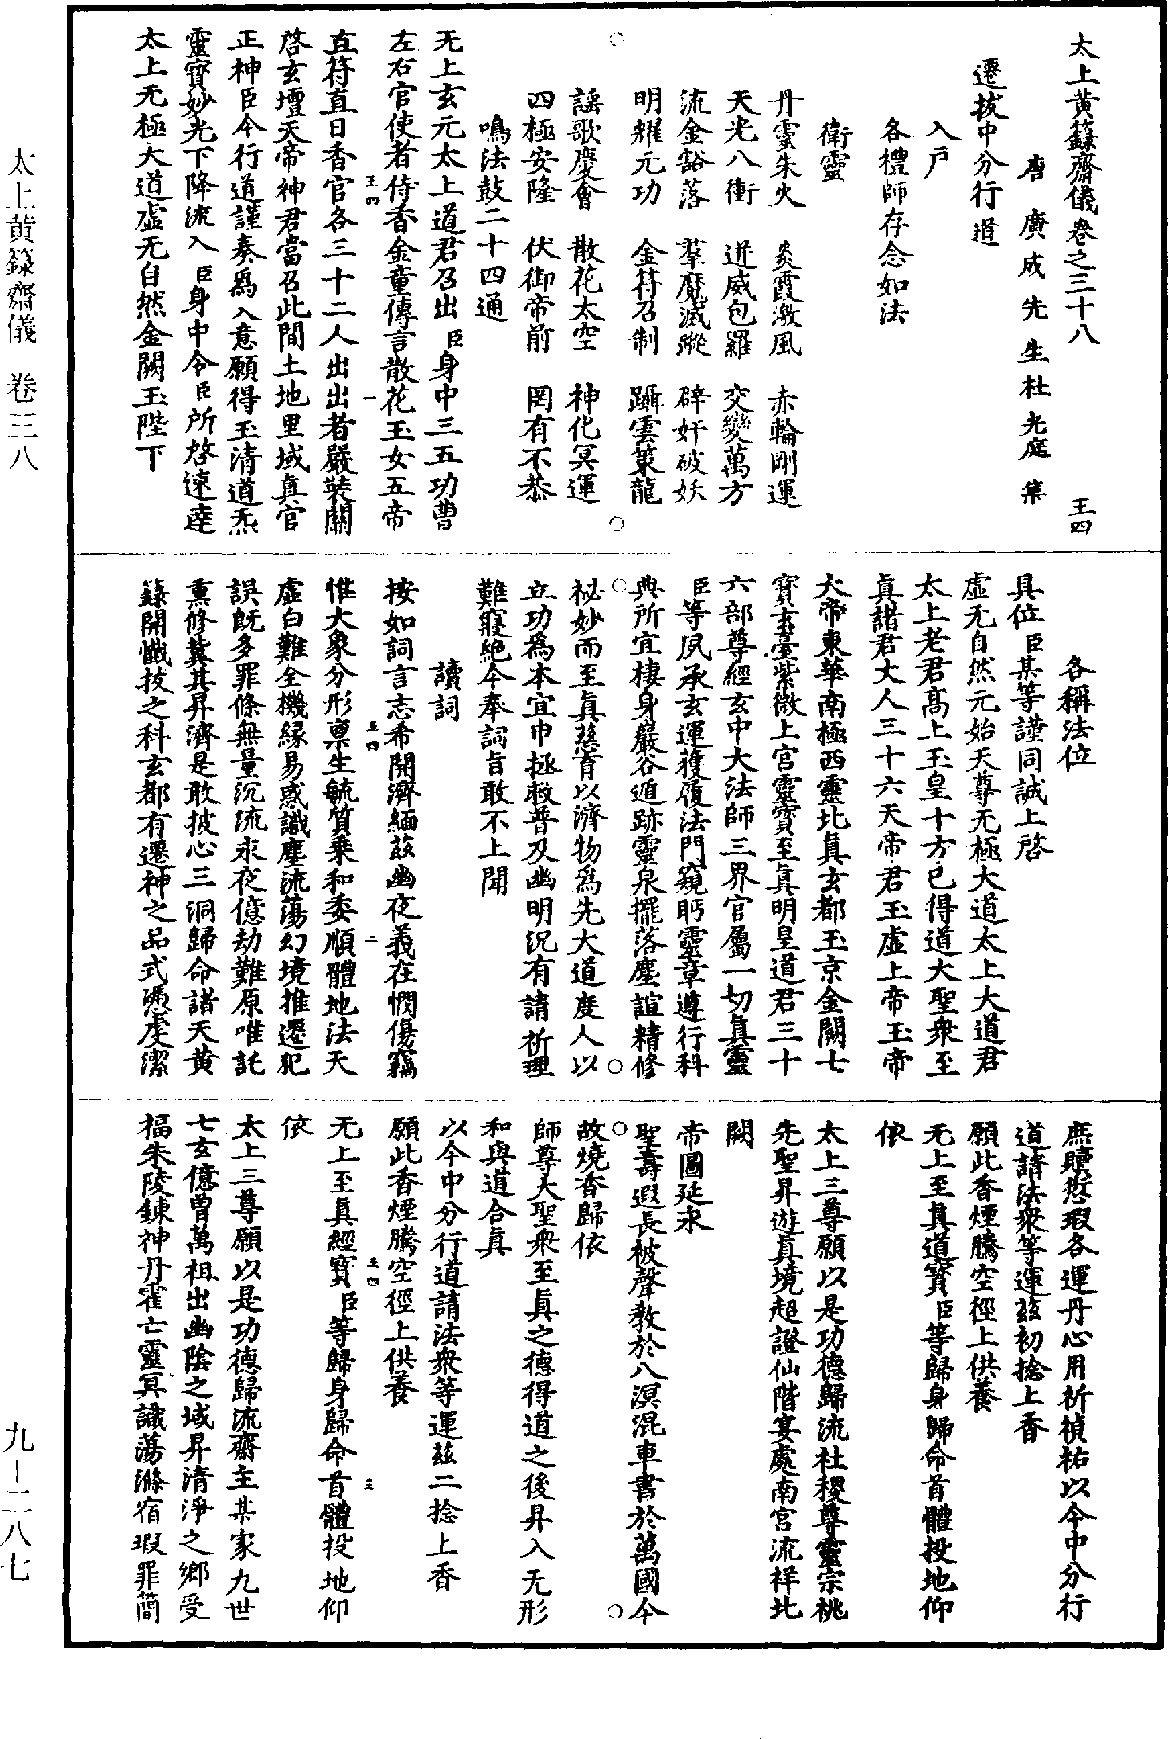 太上黃籙齋儀卷之三十八　王四
唐廣成先生杜光庭集
遷拔中分行道
入戶
各禮師存念如法
衛靈
丹靈朱火　炎霞激風　赤輪剛運
天光八衝　迸威包羅　交變萬方
流金豁落　羣魔滅蹤　碎奸破妖
明耀元功　金符召制　躡雲策龍
謠歌慶會　散花太空　神化冥運
四極安隆　伏御帝前　罔有不恭
鳴法鼓二十四通
无上玄元太上道君召出臣身中三五功曹
左右官使者侍香金童傳言散花玉女五帝
王四　一
直符直日香官各三十二人出出者嚴裝關
啓玄壇天帝神君當召此間土地里域真官
正神臣今行道謹奏爲入意願得玉清道炁
靈寶妙光下降流入臣身中令臣所啓速達
太上无極大道虛无自然金闕玉陛下
各稱法位
具位臣某等謹同誠上啓
虛无自然元始天尊无極大道太上大道君
太上老君高上玉皇十方已得道大聖衆至
真諸君丈人三十六天帝君玉虛上帝玉帝
大帝東華南極西靈北真玄都玉京金闕七
寶玄臺紫微上宫靈寶至真明皇道君三十
六部尊經玄中大法師三界官屬一切真靈
臣等夙承玄運獲履法門窺眄靈章遵行科
典所宜棲身巖谷遁跡靈泉擺落塵諠精修
祕妙而至真慈育以濟物爲先大道度人以
立功爲本宜申拯救普及幽明況有請祈理
難寢絕今奉詞旨敢不上聞
讀詞
按如詞言志希開濟緬茲幽夜義在憫傷竊
王四　二
惟大象分形稟生毓質乗和委順體地法天
虛白難全機緣易惑識塵流蕩幻境推遷犯
誤旣多罪條無量沉流永夜億劫難原唯託
熏修冀其昇濟是敢披心三洞歸命諸天黃
籙開懺拔之科玄都有遷神之品式憑虔潔
庶贖愆瑕各運丹心用祈禎祐以今中分行
道請法衆等運茲初捻上香
願此香煙騰空徑上供養
无上至真道寶臣等歸身歸命首體投地仰
依
太上三尊願以是功德歸流社稷尊靈宗祧
先聖昇遊真境超證仙階宴處南宫流祥北
闕
帝圖延永
聖壽遐長被聲教於八溟混車書於萬國今
故燒香歸依
師尊大聖衆至真之德得道之後昇入无形
和與道合真
以今中分行道請法衆等運茲二捻上香
願此香煙騰空徑上供養
王四　三
无上至真經寶臣等歸身歸命首體投地仰
依
太上三尊願以是功德歸流齋主某家九世
七玄億曽萬祖出幽陰之域昇清淨之鄉受
福朱陵鍊神丹霍亡靈冥識蕩滌宿瑕罪簡
太上黄籙齋儀　卷三八
九—二八七